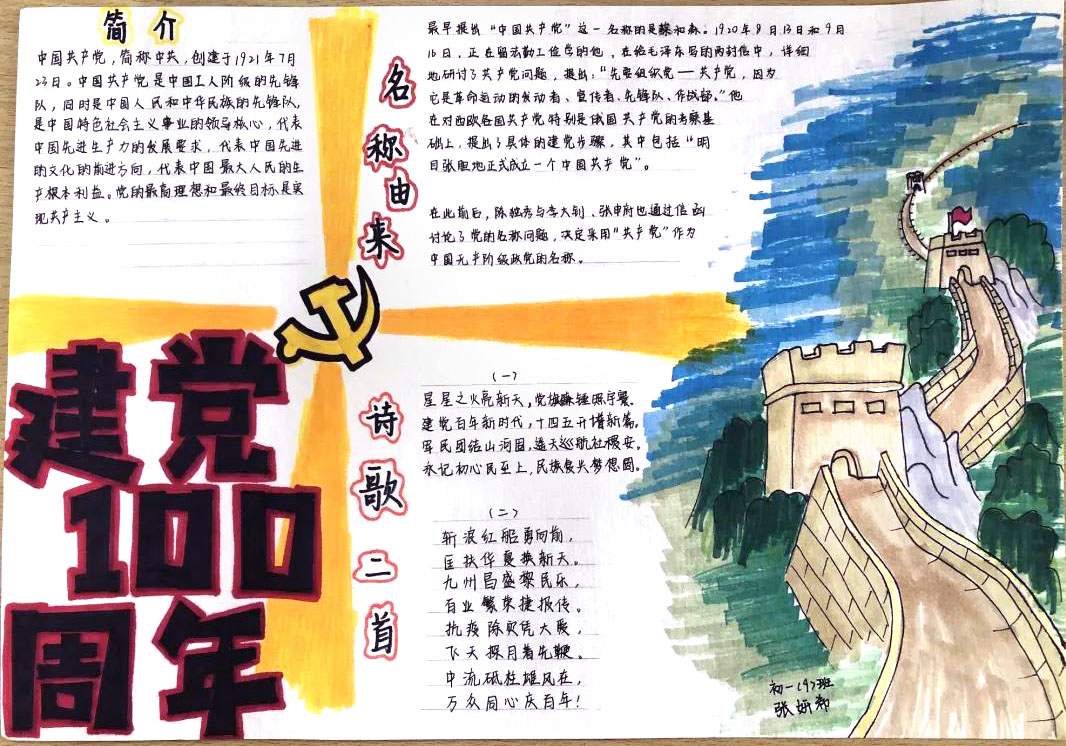 简介
中国共产党，简称中共，创建于1921年7月
23日。中国共产党是中国工人阶级的先锋
队，同时是中国人民和中华民族的先锋队，
是中国特色社会主义事业的领导核心，代表
中国先进生产力的发展要求，代表中国先进
的文化的前进方向，代表中国最大人民的生
产根本利益。党的最高理想和最终目标是实
现共产主义。
名称由来
最早提出“中国共产党”这一名称的是蔡和森。1920年8月13日和9月
16日，正在留法勤工俭学的他，在给毛泽东写的两封信中，详细
地研讨了共产党问题，提出：“先要组织党——共产党，因为
它是革命运动的发动者、宣传者、先锋队、作战部。”他
在对西欧各国共产党特别是俄国共产党的考察基
础上，提出了具体的建党步骤，其中包括“明
目张胆地正式成立一个中国共产党”。
在此前后，陈独秀与李大钊、张申府也通过信函
讨论了党的名称问题，决定采用“共产党”作为
中国无产阶级政党的名称。
建党
100
周年
诗歌二首
（一）
星星之火亮新天，党旗 锤照宇寰。
建党百年新时代，十四五开增新篇。
军民团结山河固，遨天巡航社稷安。
永记初心民至上，民族复兴梦想圆。
（二）
斩浪红船勇向前，
匡扶华夏换新天。
九州昌盛黎民乐，
百业繁荣捷报传。
抗疫除灾凭大爱，
飞天探月着先鞭。
中流砥柱雄风在，
万众同心庆百年！
初一(9)班
张妍